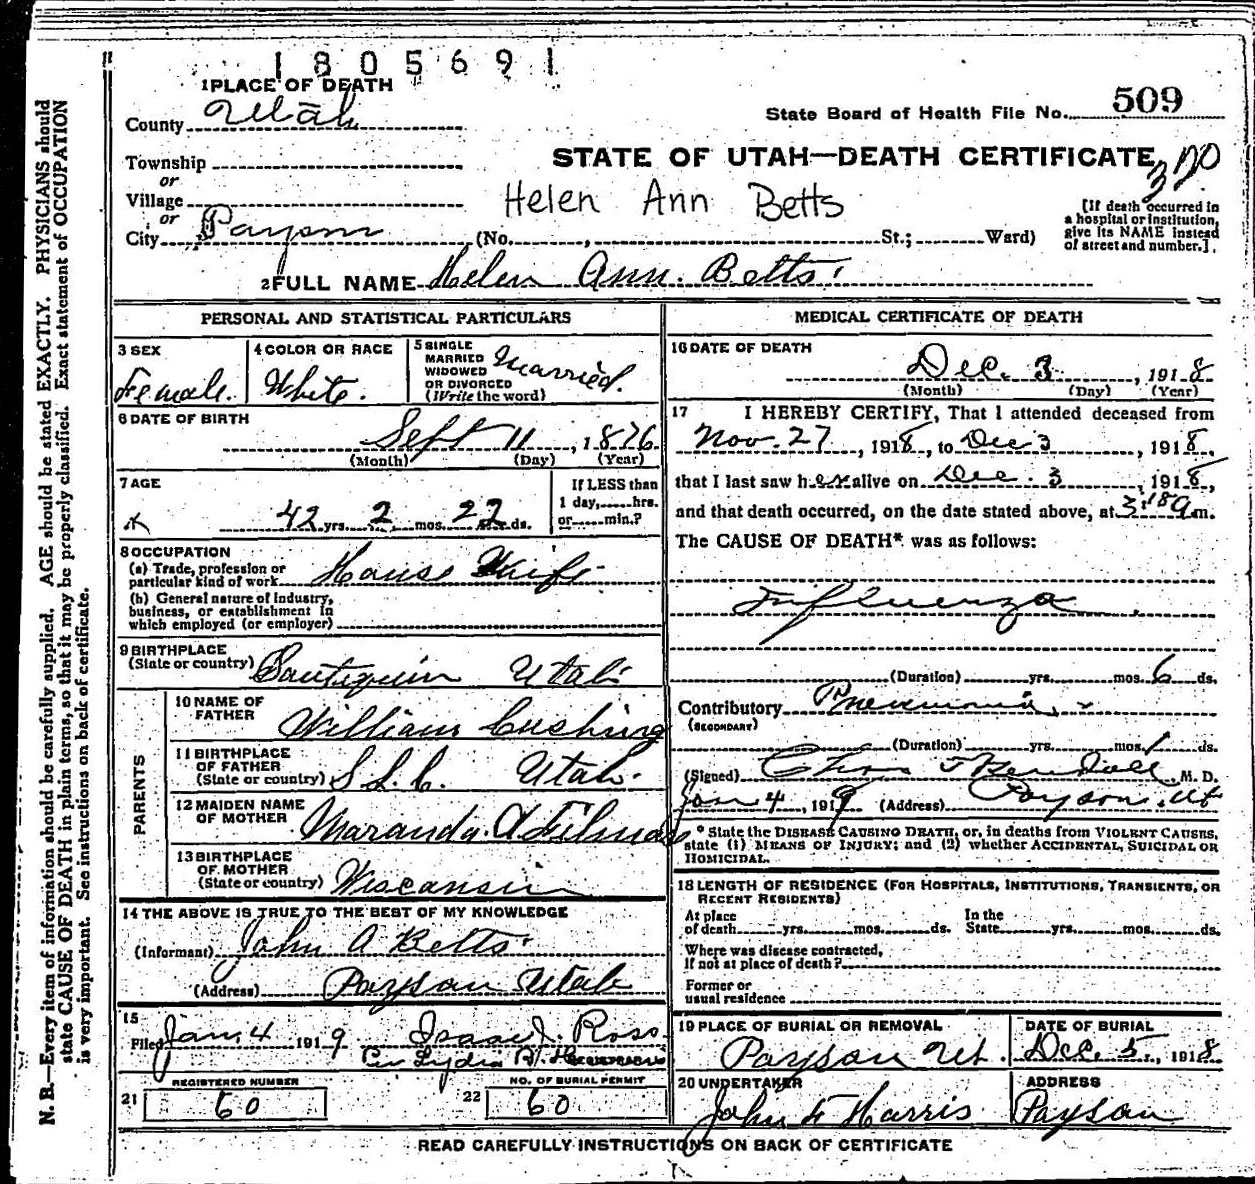 1805691
1 PLACE OF DEATH
County Utah
State Board of Health File No. 509
Township
or
Village
or
City Payson (No. , St.; Ward)
STATE OF UTAH—DEATH CERTIFICATE
Helen Ann Betts
[If death occurred in
a hospital or institution,
give its NAME instead
of street and number.]
2 FULL NAME Helen Ann Betts
PERSONAL AND STATISTICAL PARTICULARS
3 SEX
Female.
4 COLOR OR RACE
White.
5 SINGLE
MARRIED
WIDOWED
OR DIVORCED
(Write the word)
Married.
6 DATE OF BIRTH
Sept 11, 1876
(Month) (Day) (Year)
7 AGE
42 yrs. 2 mos. 22 ds.
If LESS than
1 day, hrs.
or min.?
8 OCCUPATION
(a) Trade, profession or
particular kind of work House Wife
(b) General nature of industry,
business, or establishment in
which employed (or employer)
9 BIRTHPLACE
(State or country) Santiquin Utah
PARENTS
10 NAME OF
FATHER
William Cushing
11 BIRTHPLACE
OF FATHER
(State or country) S.L.C. Utah.
12 MAIDEN NAME
OF MOTHER
Maranda A
13 BIRTHPLACE
OF MOTHER
(State or country) Wiscansin
14 THE ABOVE IS TRUE TO THE BEST OF MY KNOWLEDGE
(Informant) John A Betts
(Address) Payson Utah
15
Filed Jan. 4 1919 Isaac J. Ross
Per Lydia
REGISTERED NUMBER
21 60
NO. OF BURIAL PERMIT
22 60
MEDICAL CERTIFICATE OF DEATH
16 DATE OF DEATH
Dec. 3, 1918
(Month) (Day) (Year)
17 I HEREBY CERTIFY, That I attended deceased from
Nov. 27, 1918, to Dec 3, 1918,
that I last saw her alive on Dec. 3, 1918,
and that death occurred, on the date stated above, at 3:18 a m.
The CAUSE OF DEATH* was as follows:
Influenza
(Duration) yrs. mos. 6 ds.
Contributory Pneumonia
(SECONDARY)
(Duration) yrs. mos. 1 ds.
(Signed) M. D.
Jan 4, 1919 (Address) Payson, Ut
* State the DISEASE CAUSING DEATH, or, in deaths from VIOLENT CAUSES,
state (1) MEANS OF INJURY; and (2) whether ACCIDENTAL, SUICIDAL OR
HOMICIDAL.
18 LENGTH OF RESIDENCE (FOR HOSPITALS, INSTITUTIONS, TRANSIENTS, OR
RECENT RESIDENTS)
At place
of death yrs. mos. ds.
In the
State yrs. mos. ds.
Where was disease contracted,
If not at place of death?
Former or
usual residence
19 PLACE OF BURIAL OR REMOVAL
Payson Ut.
DATE OF BURIAL
Dec. 5, 1918
20 UNDERTAKER
John F Harris
ADDRESS
Payson
READ CAREFULLY INSTRUCTIONS ON BACK OF CERTIFICATE
N. B.—Every item of information should be carefully supplied. AGE should be stated EXACTLY. PHYSICIANS should
state CAUSE OF DEATH in plain terms, so that it may be properly classified. Exact statement of OCCUPATION
is very important. See instructions on back of certificate.